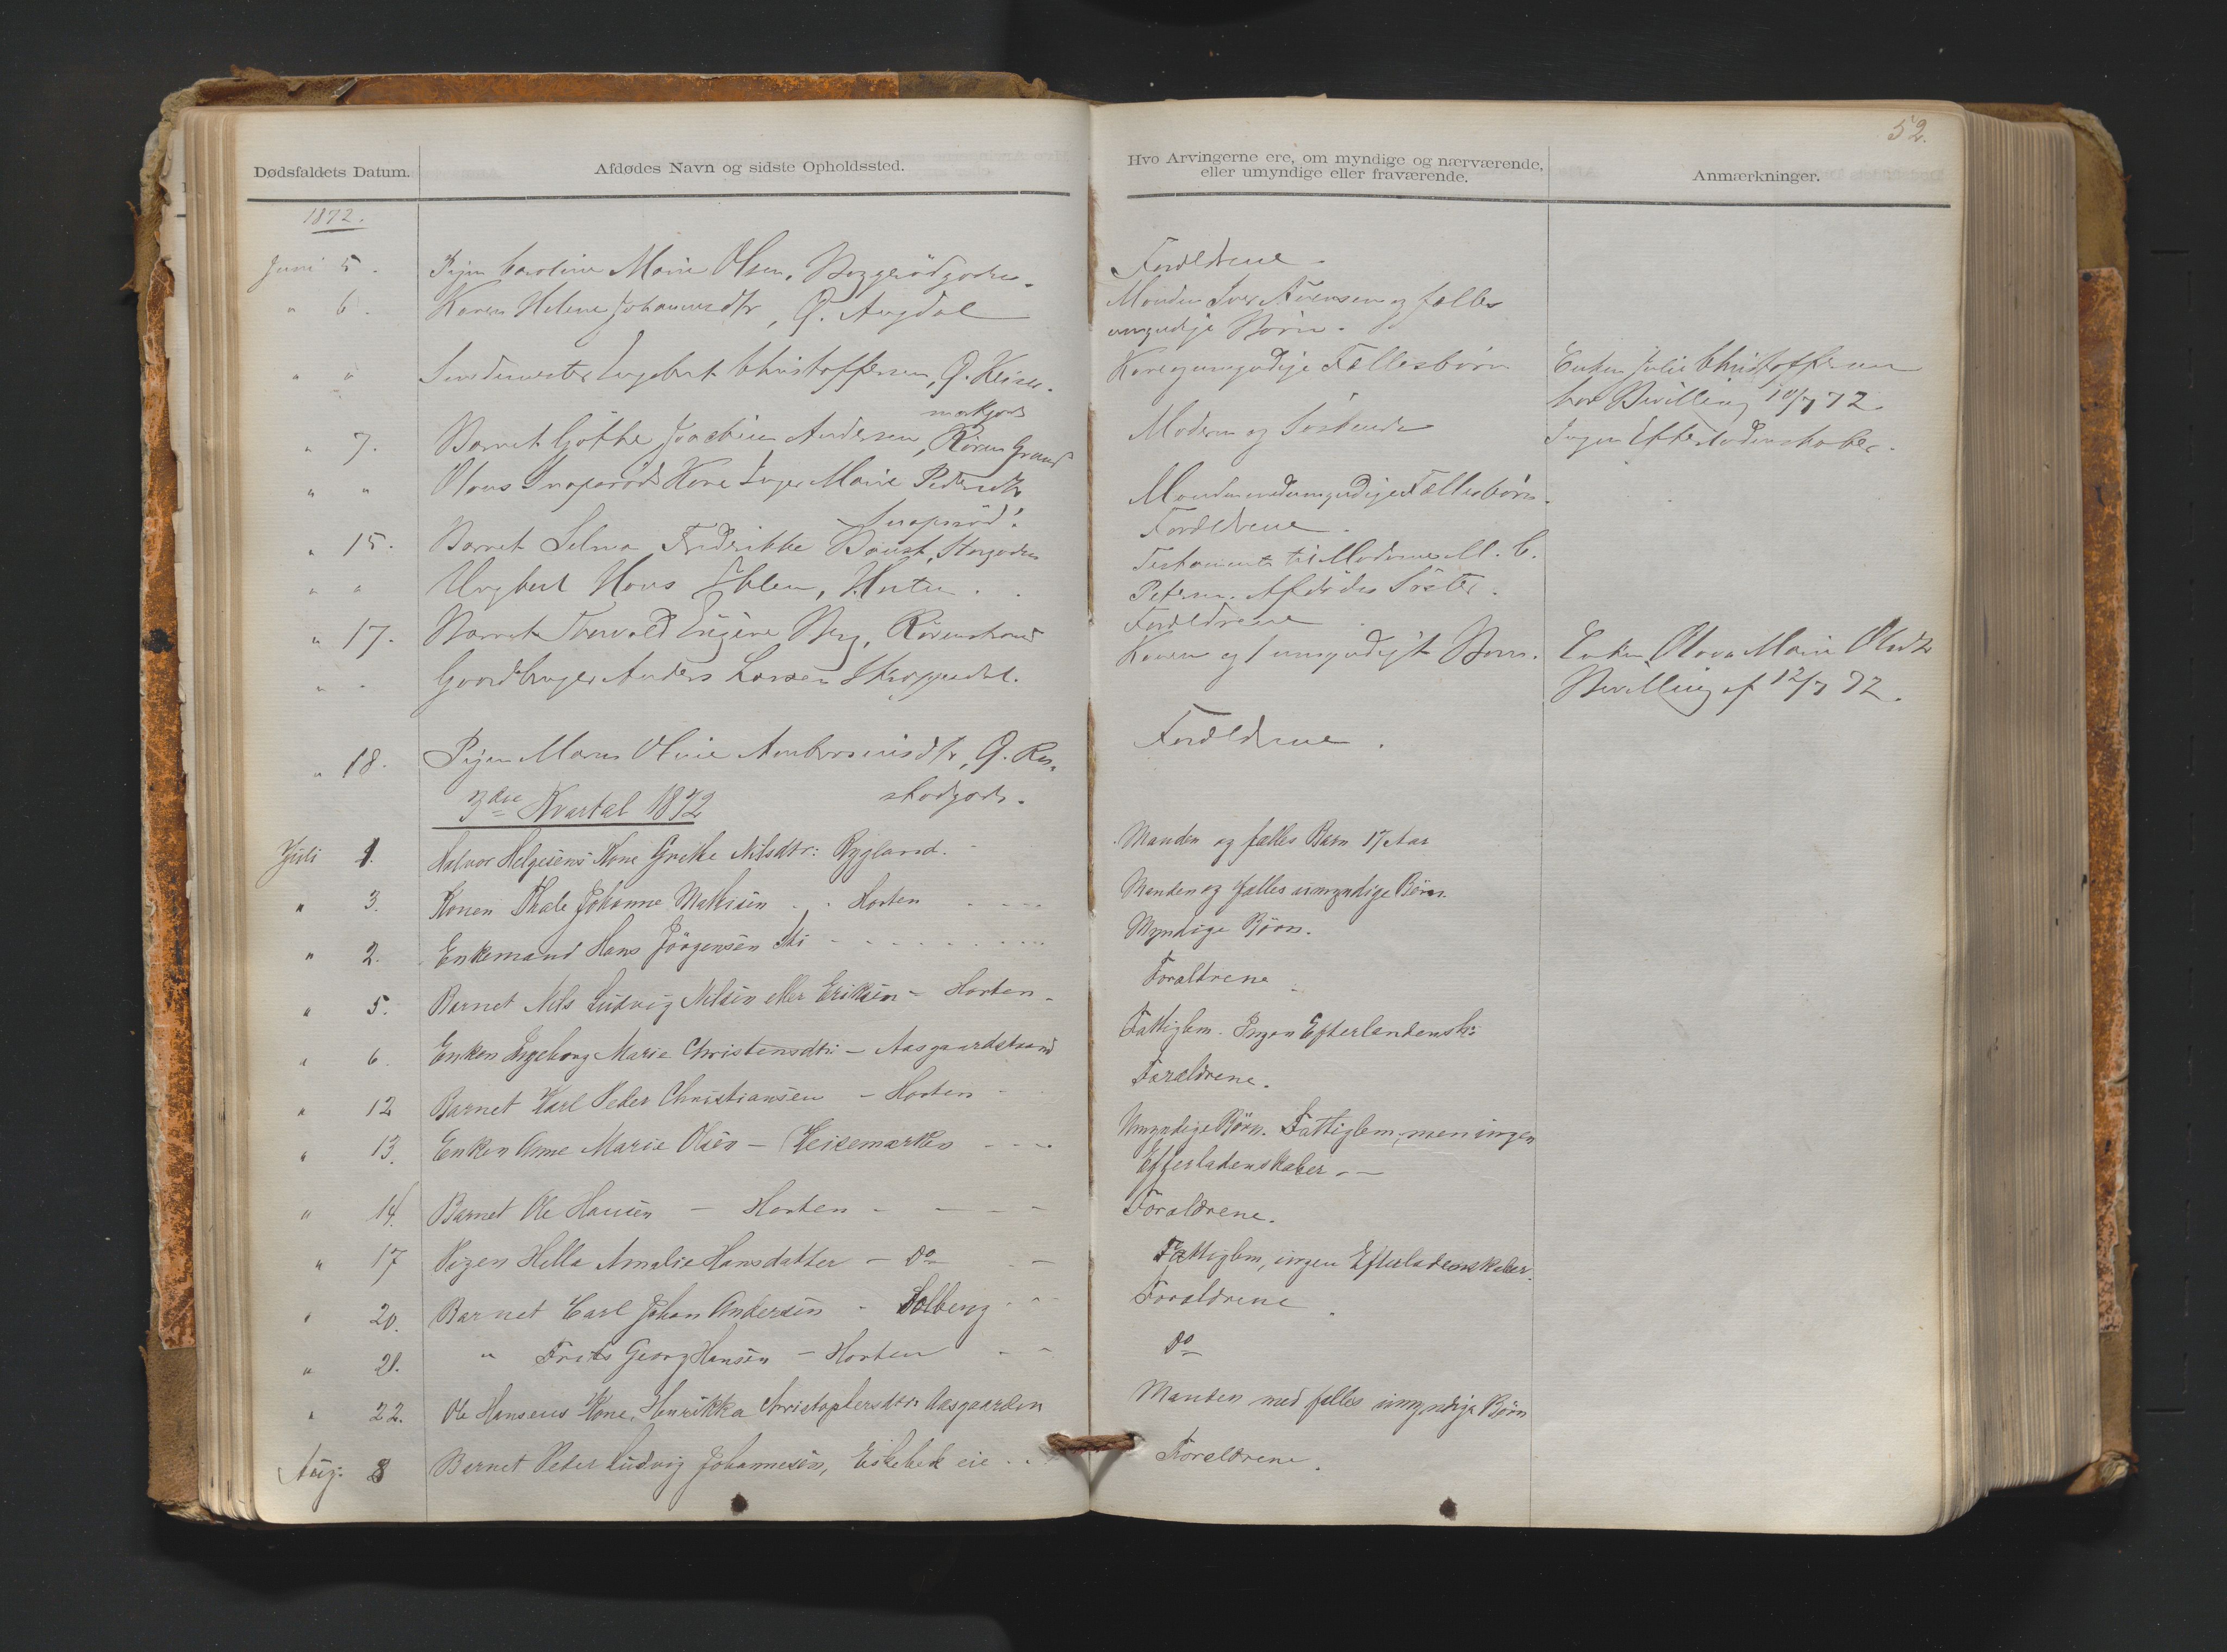 52.
Dødsfaldets Datum.
Afdødes Navn og sidste Opholdssted.
Hvo Arvingerne ere, om myndige og nærværende,
eller umyndige eller fraværende.
Anmærkninger.
1872.
Juni 5. Pigen Caroline Marie Olsen,
Forældrene.
" 6. Karen Helene Johannesdtr, G. Augdal
Manden Iver Iversen og fælles
umyndige Børn.
" " Ingebret Christoffersen, G. Keise-
markgods
Kone og umyndige Fællesbørn
Enken Julie Christoffersen
har Bevilling 10/7 72.
" 7. Barnet Göthe Joachim Andersen, Røren Grund
Moderen og Søskende
Ingen Efterladenskaber.
" " Olaus Snapsrøds Kone Inger Marie Pedersdtr
Snapsrød.
Manden med umyndige Fællesbørn.
" 15. Barnet Selma Fredrikke
Forældrene.
" " Ungkarl Hans Iblen, Horten.
Testamente til Madame M. C.
Petersen. Afdødes Søster.
" 17. Barnet Thorvald Eugine Berg, Rørenstrand
Forældrene
" " Gaardbruger Anders Larsen Skoppendal.
Konen og 1 umyndigt Barn.
Enken Olava Marie Olsdtr
Bevilling af 12/7 72.
" 18. Pigen Maren Oline Ambrosiusdtr, G. Re-
stadgods.
Forældrene.
3die Kvartal 1872
Juli 1. Halvor Helgesens Kone Grethe Nilsdtr: Rygland.
Manden og fælles Barn 17 Aar
" 3. Konen Thale Johanne Mathisen - Horten
Manden og fælles umyndige Børn.
" 2. Enkemand Hans Jörgensen Ski
Myndige Børn.
" 5. Barnet Nils Ludvig Nilsen eller Eriksen - Horten -
Forældrene
" 6. Enken Ingeborg Marie Christensdtr: - Aasgaardstrand
Fattiglem. Ingen Efterladensk:
" 12 Barnet Karl Peder Christiansen - Horten -
Forældrene.
" 13. Enken Anne Marie Olsen - Keisemarken
Umyndige Børn. Fattiglem, men ingen
Efterladenskaber. -
" 14. Barnet Ole Hansen - Horten -
Forældrene.
" 17 Pigen Hella Amalie Hansdatter - Do
Fattiglem, ingen Efterladenskaber.
" 20. Barnet Carl Johan Andersen - Solberg
Forældrene
" 21. " Frits Georg Hansen - Horten
Do
" 22. Ole Hansens Kone, Henrikka Christophersdtr: Aasgaarden
Manden med fælles umyndige Børn
Aug: 8 Barnet Peder Ludvig Johannesen, Eskebek eie
Forældrene.